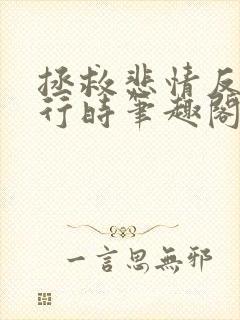 拯救悲情反
行时笔趣阁
一言思無邪